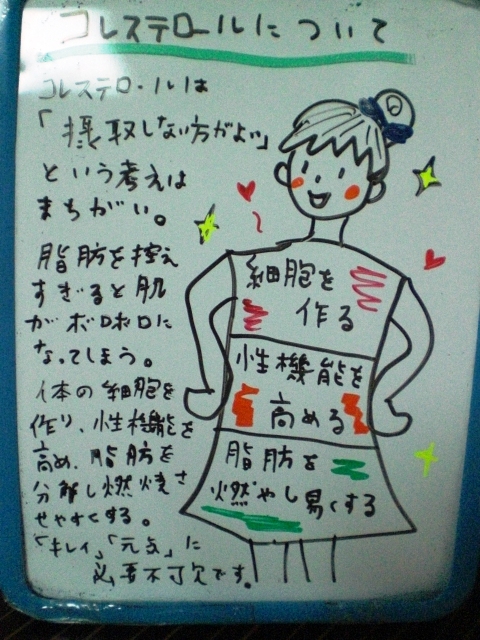 コレステロールについて
コレステロールは
「摂取しない方がよい」
という考えは
まちがい。
脂肪を控え
すぎると肌
がボロボロに
なってしまう。
体の細胞を
作り、性機能を
高め、脂肪を
分解し燃焼さ
せやすくする。
「キレイ」「元気」に
必要不可欠です。
細胞を
作る
性機能を
高める
脂肪を
燃やし易くする